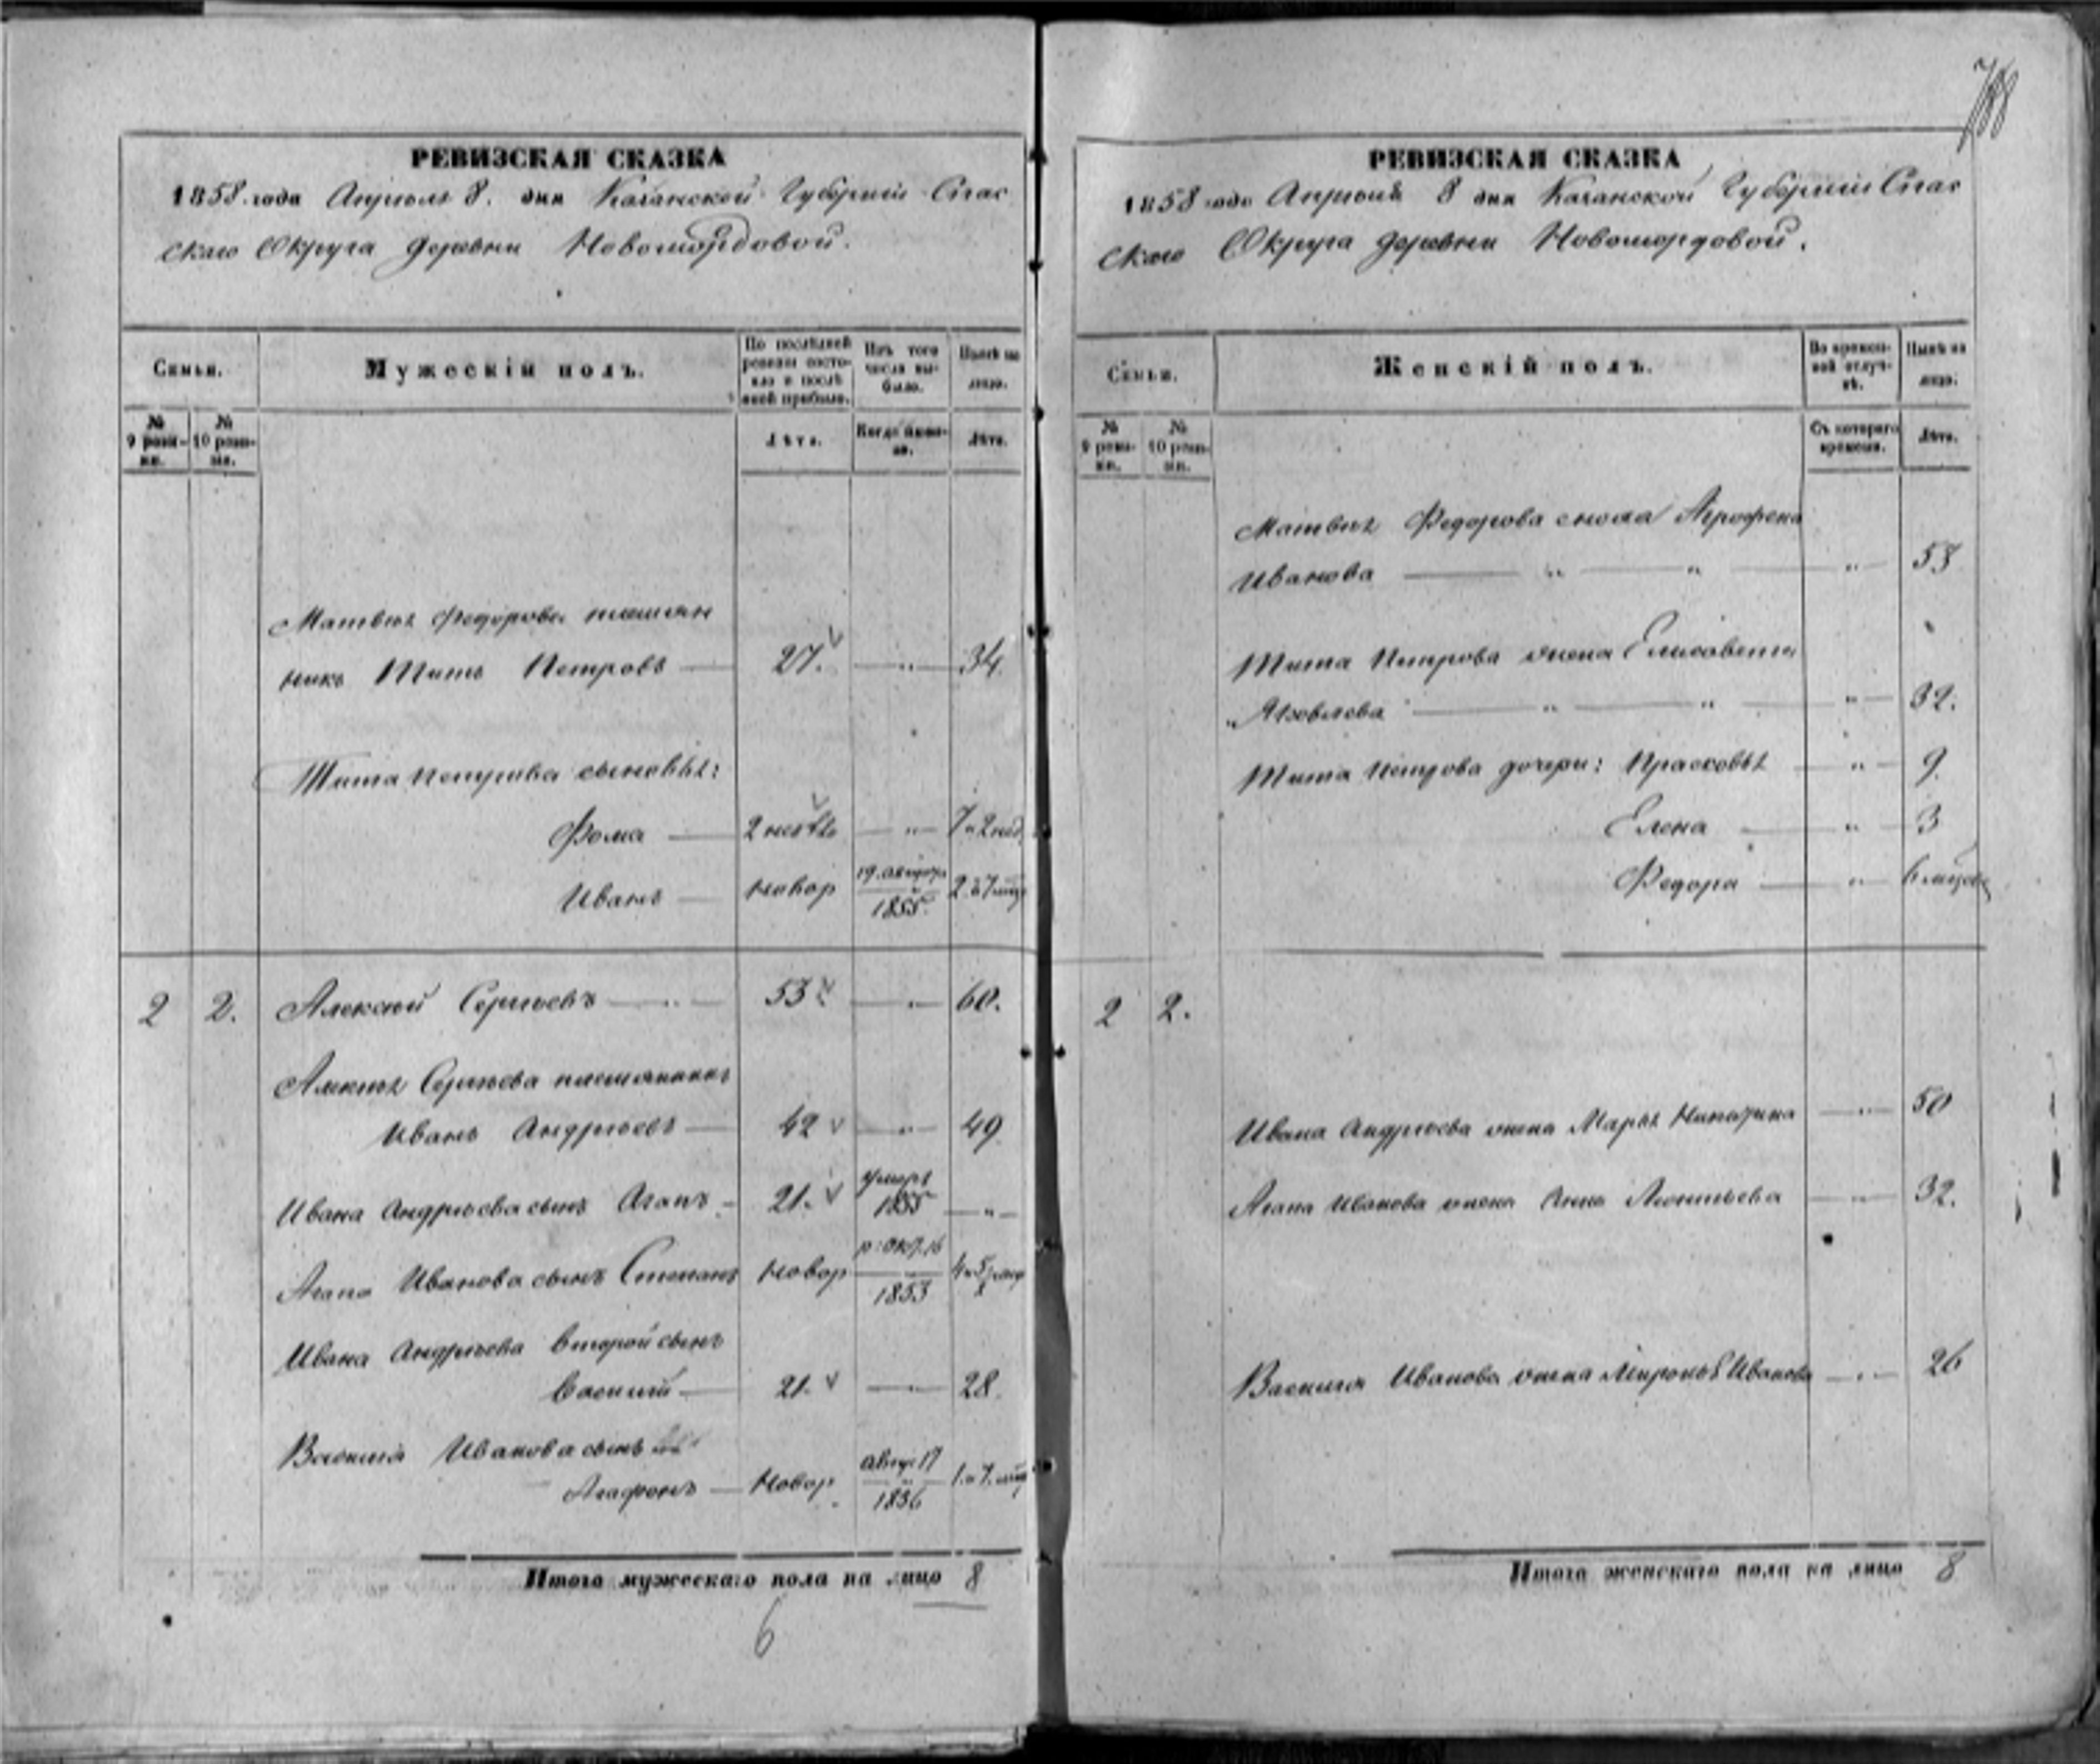 788
РЕВИЗСКАЯ СКАЗКА
1858 года Апреля 8. дня Казанской Губернии Спас
скаго Округа деревни Новомордовой.
Семьи.
Мужескій полъ.
По послѣдней ревизіи состояло и послѣ оной прибыло.
Изъ того числа выбыло.
Нынѣ на лицо.
№ 9 ревизіи.
№ 10 ревизіи.
Лѣта.
Когда именно.
Лѣта.
Матвея Федорова племян
никъ Титъ Петровъ 27. " 34.
Тита Петрова сыновья:
Фома 2 " 7 и 2 нед
Иванъ Новор 19. августа 1855. 2 и 7 мѣц
2 2. Алексей Сергеевъ " 53 " 60.
Алексея Сергеева племянникъ
Иванъ Андреевъ 42 " 49
Ивана Андреева сынъ Агапъ 21. умеръ 1855 "
Агапа Иванова сынъ Степанъ Новор р: окт. 16 1853 4 и 5
Ивана Андреева второй сынъ
Василій 21. 28.
Василія Иванова сынъ
Агафонъ Новор август 17 1856 1 и 7. мѣц
Итого мужескаго пола на лицо 8
6
РЕВИЗСКАЯ СКАЗКА
1858 года Апреля 8 дня Казанской Губерніи Спас
скаго Округа деревни Новомордовой.
Семьи.
Женскій полъ.
Во временной отлучкѣ.
Нынѣ на лицо.
№ 9 ревизіи.
№ 10 ревизіи.
Съ котораго времени.
Лѣта.
Матвея Федорова сноха Агрофена
Иванова " " " 53
Тита Петрова жена Елисавета
Яковлева " " " 32.
Тита Петрова дочери: Прасковья " 9.
Елена " 3
Федора " 6 мѣцовъ
2 2.
Ивана Андреева жена Марья " 50
Агапа Иванова жена Анна " 32.
Василия Иванова жена Иванова " 26
Итого женскаго пола на лицо 8